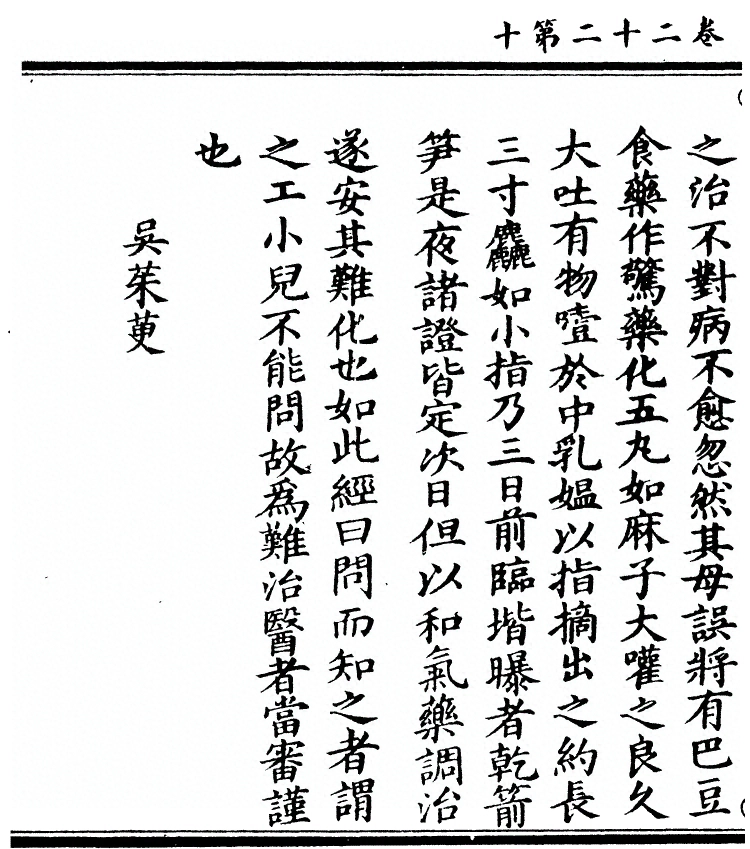 卷二十二第十
之治不對病不愈忽然其母誤將有巴豆
食藥作驚藥化五丸如麻子大嚾之良久
大吐有物噎於中乳媼以指摘出之約長
三寸麤如小指乃三日前臨堦曝者乾箭
笋是夜諸證皆定次日但以和氣藥調治
遂安其難化也如此經曰問而知之者謂
之工小兒不能問故爲難治醫者當審謹
也
吳茱萸